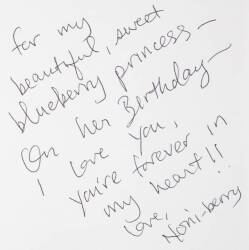 for my
beautiful, sweet
blueberry princess-
On her Birthday-
I love you,
you're forever in
my heart!!
Love,
Noni-berry